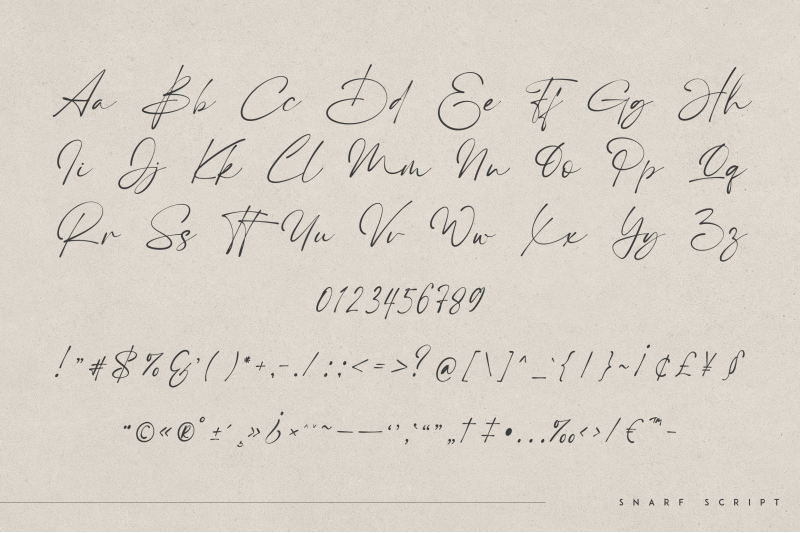 Aa Bb Cc Dd Ee Ff Gg Hh
Ii Jj Kk Cl Mm Nn Oo Pp Qq
Rr Ss Tt Uu Vv Ww Xx Yy Zz
0123456789
! " # $ % & ' ( ) * + , - . / : ; < = > ? @ [ \ ] ^ _ ` { | } ~ ¡ ¢ £ ¥ §
¨ © « ® ° ± ´ ¸ » ¿ × ˆ ˜ – — ‘ ’ ‚ “ ” „ † ‡ • … ‰ ‹ › ⁄ € ™ −
SNARF SCRIPT